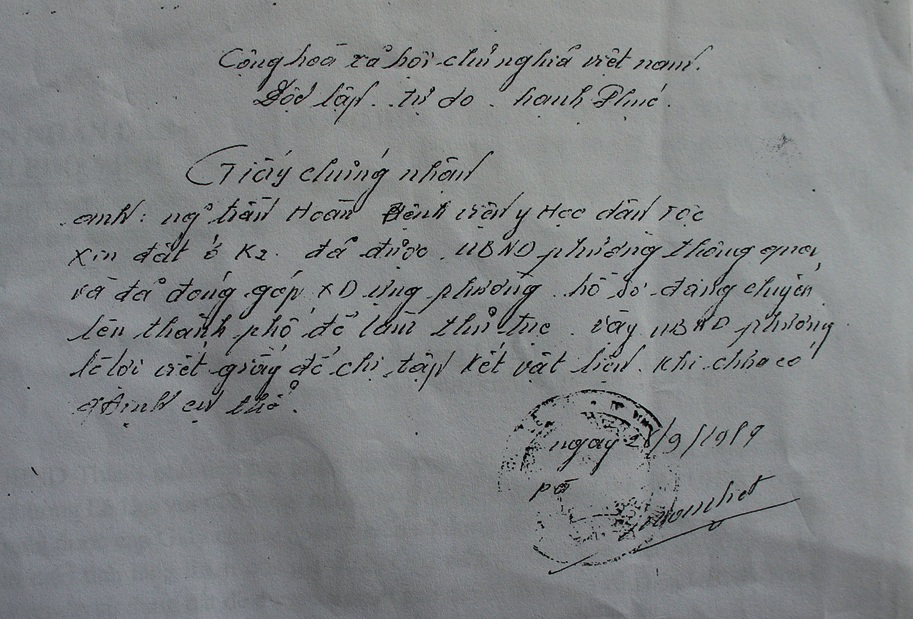 Cộng hoà xả hội chủ nghĩa việt nam.
Độc lập. tự do. hạnh Phúc.
Giấy chứng nhận
anh: ngô trần Hoàn Bệnh viện y Học dân Tộc
xin đất ở K2. đã được UBND phường thông qua
và đả đóng góp XD ủng phường. hồ sơ đang chuyển
lên thành phố để làm thủ tục. vậy UBND phường
lê lợi viết giấy để chị tập kết vật liệu. khi chưa có
định cụ thể.
ngày 28/9/1989